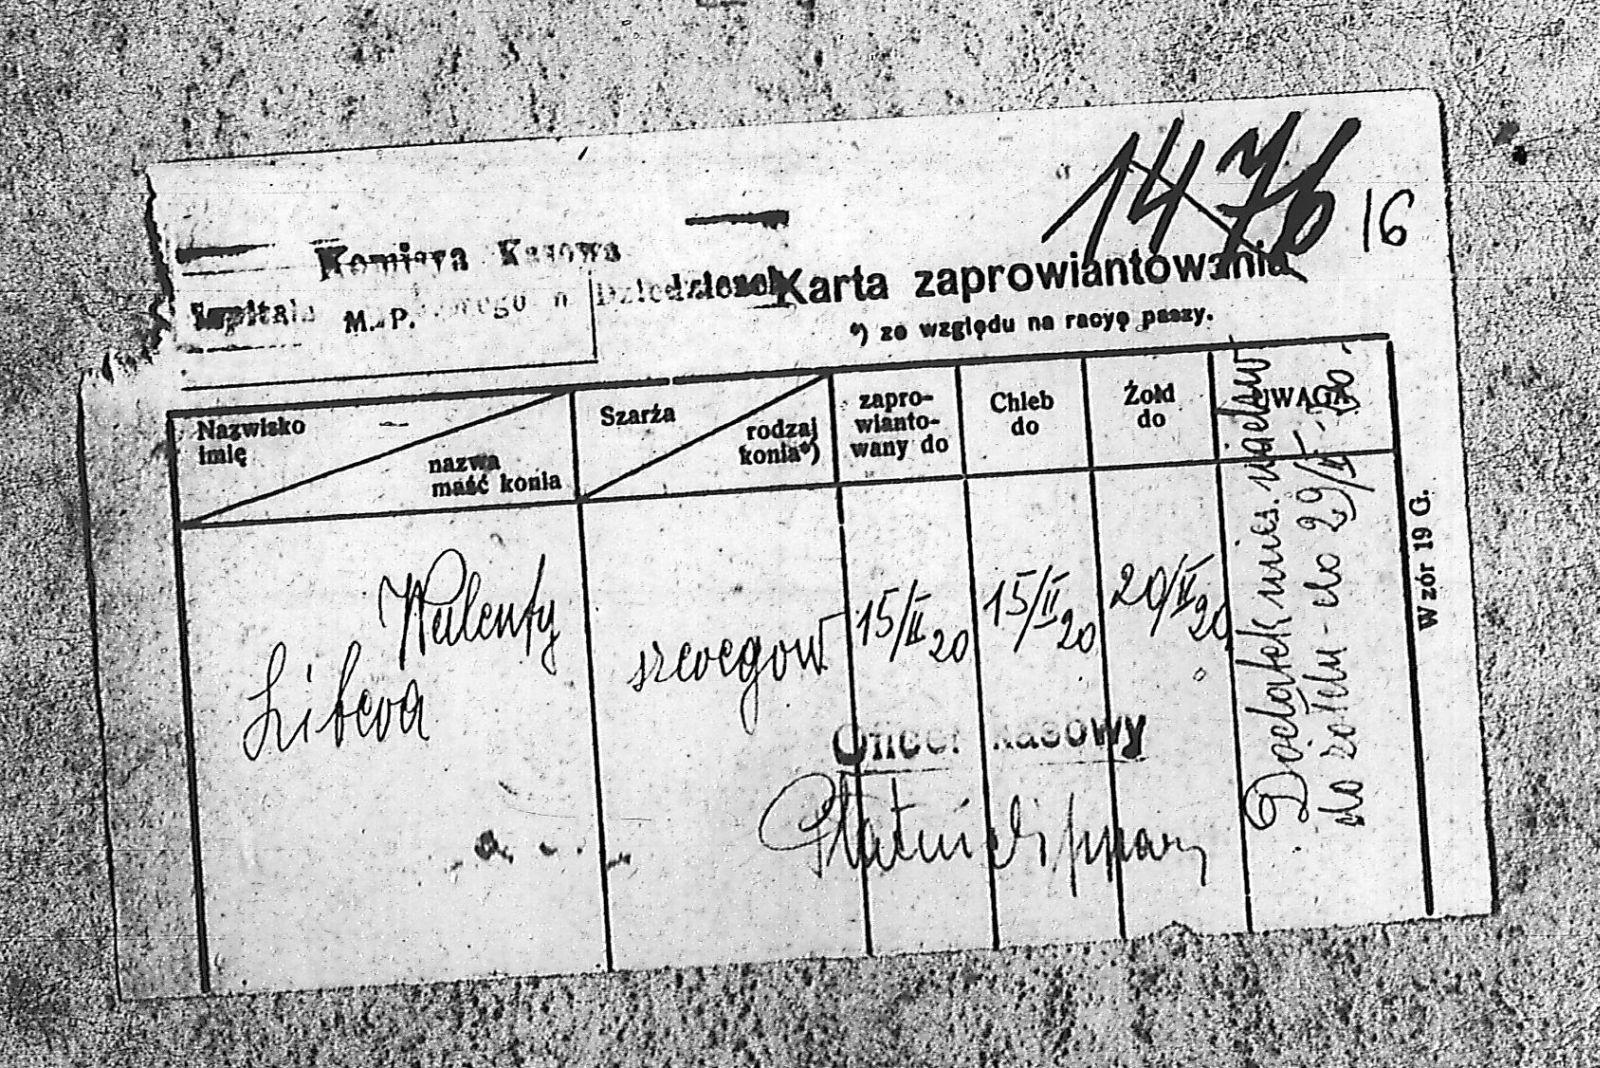 1476
16
Komisya Kasowa
Szpitala
M. P.
Karta zaprowiantowania
*) ze względu na racyę paszy.
Nazwisko
imię
nazwa
maść konia
Szarża
rodzaj
konia*)
zapro-
wianto-
wany do
Chleb
do
Żołd
do
UWAGA
Walenty
Libera
szeregow
15/II 20
15/II 20
20/II 20
Dodatek mies.
do żołdu do 29/II 20.
Oficer kasowy
Wzór 19 G.